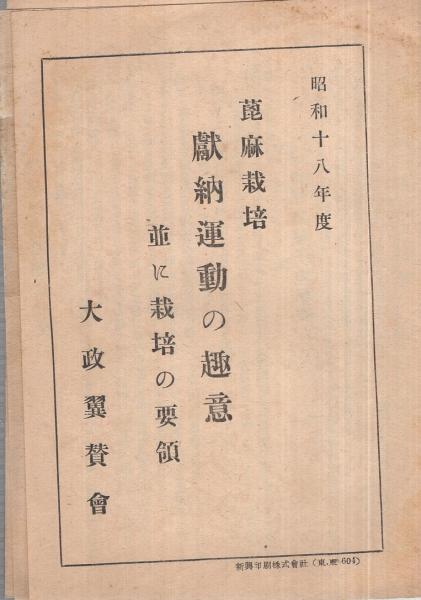 昭和十八年度
蓖麻栽培
獻納運動の趣意
並に栽培の要領
大政翼賛會
新興印刷株式會社（東.東 604）